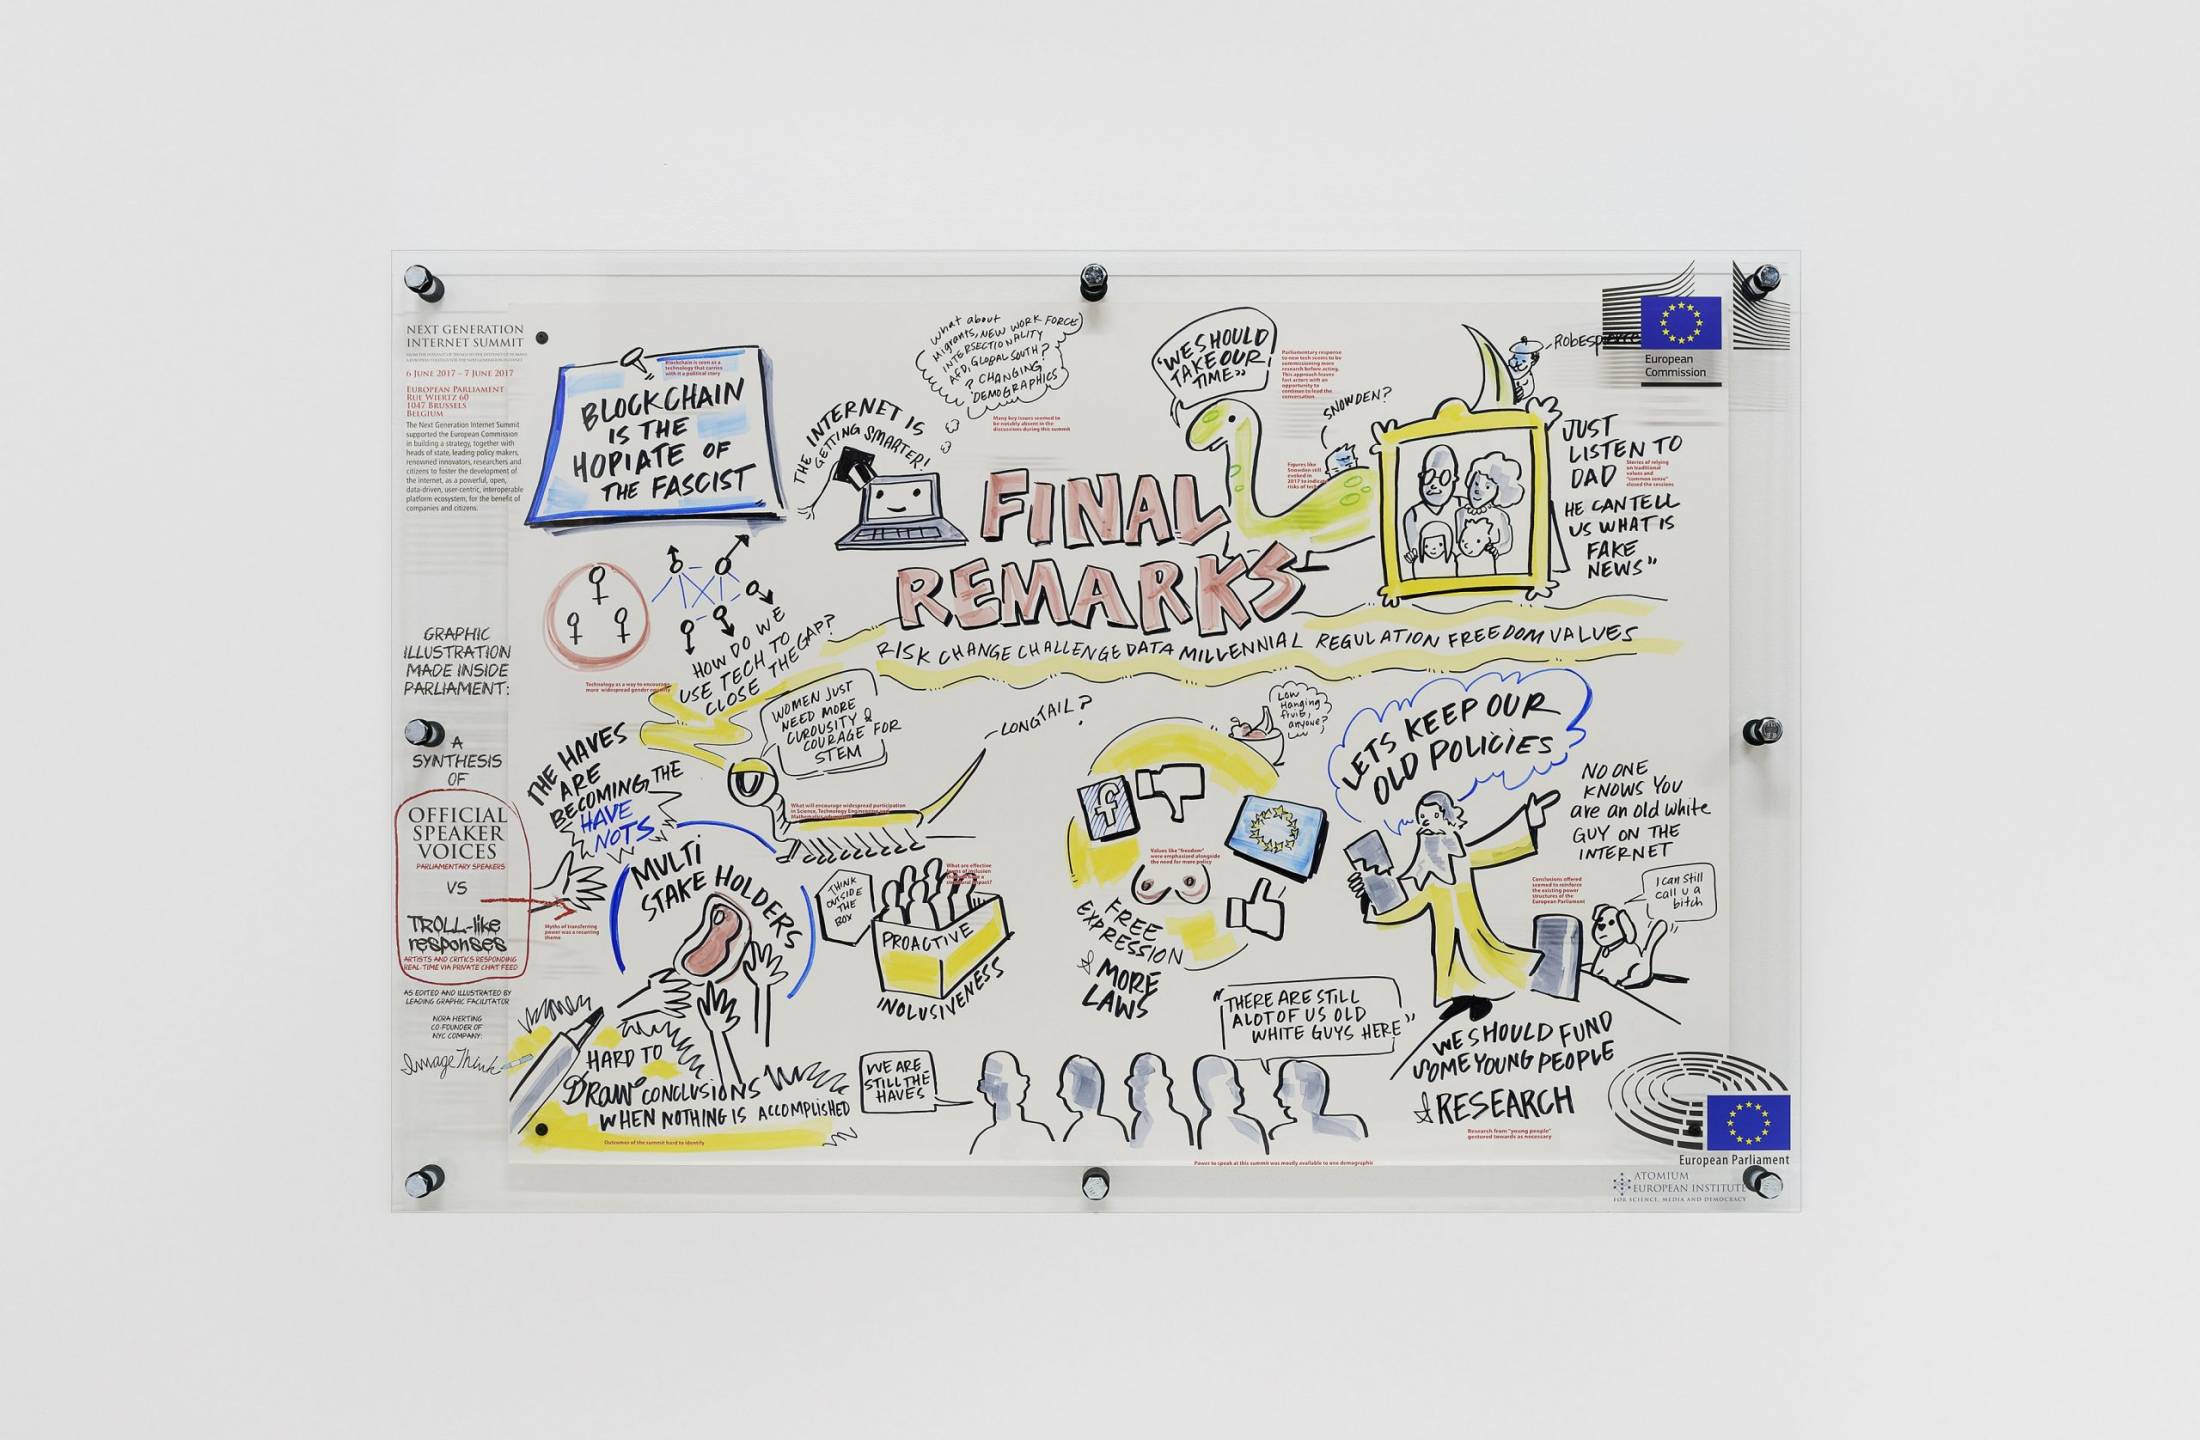 NEXT GENERATION
INTERNET SUMMIT
6 JUNE 2017 – 7 JUNE 2017
EUROPEAN PARLIAMENT
RUE WIERTZ 60
1047 BRUSSELS
BELGIUM
The Next Generation Internet Summit
supported the European Commission
in building a strategy, together with
heads of state, leading policy makers,
renowned innovators, researchers and
citizens to foster the development of
the internet, as a powerful, open,
data-driven, user-centric, interoperable
platform ecosystem, for the benefit of
companies and citizens.
GRAPHIC
ILLUSTRATION
MADE INSIDE
PARLIAMENT:
A
SYNTHESIS
OF
OFFICIAL
SPEAKER
VOICES
PARLIAMENTARY SPEAKERS
VS
TROLL-like
responses
ARTISTS AND CRITICS RESPONDING
REAL-TIME VIA PRIVATE CHAT FEED
AS EDITED AND ILLUSTRATED BY
LEADING GRAPHIC FACILITATOR
NORA HERTING
CO-FOUNDER OF
NYC COMPANY:
ImageThink
Blockchain is seen as a
technology that carries
with it a political story
BLOCKCHAIN
IS THE
HOPIATE OF
THE FASCIST
THE INTERNET IS
GETTING SMARTER!
What about
Migrants, NEW WORK FORCE
INTERSECTIONALITY
AFD, GLOBAL SOUTH?
? CHANGING
DEMOGRAPHICS
Many key issues seemed to
be notably absent in the
discussions during this summit
"WE SHOULD
TAKE OUR
TIME"
Parliamentary response
to new tech seems to be
summissioning more
research before acting.
This approach leaves
fast actors with an
opportunity to
continue to lead the
conversation.
SNOWDEN?
Figures like
Snowden still
evoked in
2017 to indicate
risks of tech
Robespierre
European
Commission
JUST
LISTEN TO
DAD
HE CAN TELL
US WHAT IS
FAKE
NEWS"
Stories of relying
on traditional
values and
"common sense"
closed the sessions
FINAL
REMARKS
RISK CHANGE CHALLENGE DATA MILLENNIAL REGULATION FREEDOM VALUES
HOW DO WE
USE TECH TO
CLOSE THE GAP?
Technology as a way to encourage
more widespread gender equality
THE HAVES
ARE
BECOMING THE
HAVE
NOTS
WOMEN JUST
NEED MORE
CUROUSITY &
COURAGE FOR
STEM
LONGTAIL?
What will encourage widespread participation
in Science, Technology Engineering and
Mathematics education
MULTI
STAKE HOLDERS
Myths of transferring
power was a recurring
theme
THINK
OUTSIDE
THE
BOX
What are effective
forms of inclusion
PROACTIVE
INCLUSIVENESS
Low
Hanging
fruit,
anyone?
f
Values like "freedom"
were emphasized alongside
the need for more policy
FREE
EXPRESSION
& MORE
LAWS
LETS KEEP OUR
OLD POLICIES
NO ONE
KNOWS YOU
are an old white
GUY ON THE
INTERNET
Conclusions offered
seemed to reinforce
the existing power
structures of the
European Parliament
I can still
call u a
bitch
HARD TO
DRAW CONCLUSIONS
WHEN NOTHING IS ACCOMPLISHED
Outcomes of the summit hard to identify
WE ARE
STILL THE
HAVES
"THERE ARE STILL
A LOT OF US OLD
WHITE GUYS HERE"
Power to speak at this summit was mostly available to one demographic
WE SHOULD FUND
SOME YOUNG PEOPLE
& RESEARCH
Research from "young people"
gestured towards as necessary
European Parliament
ATOMIUM
EUROPEAN INSTITUTE
FOR SCIENCE, MEDIA AND DEMOCRACY